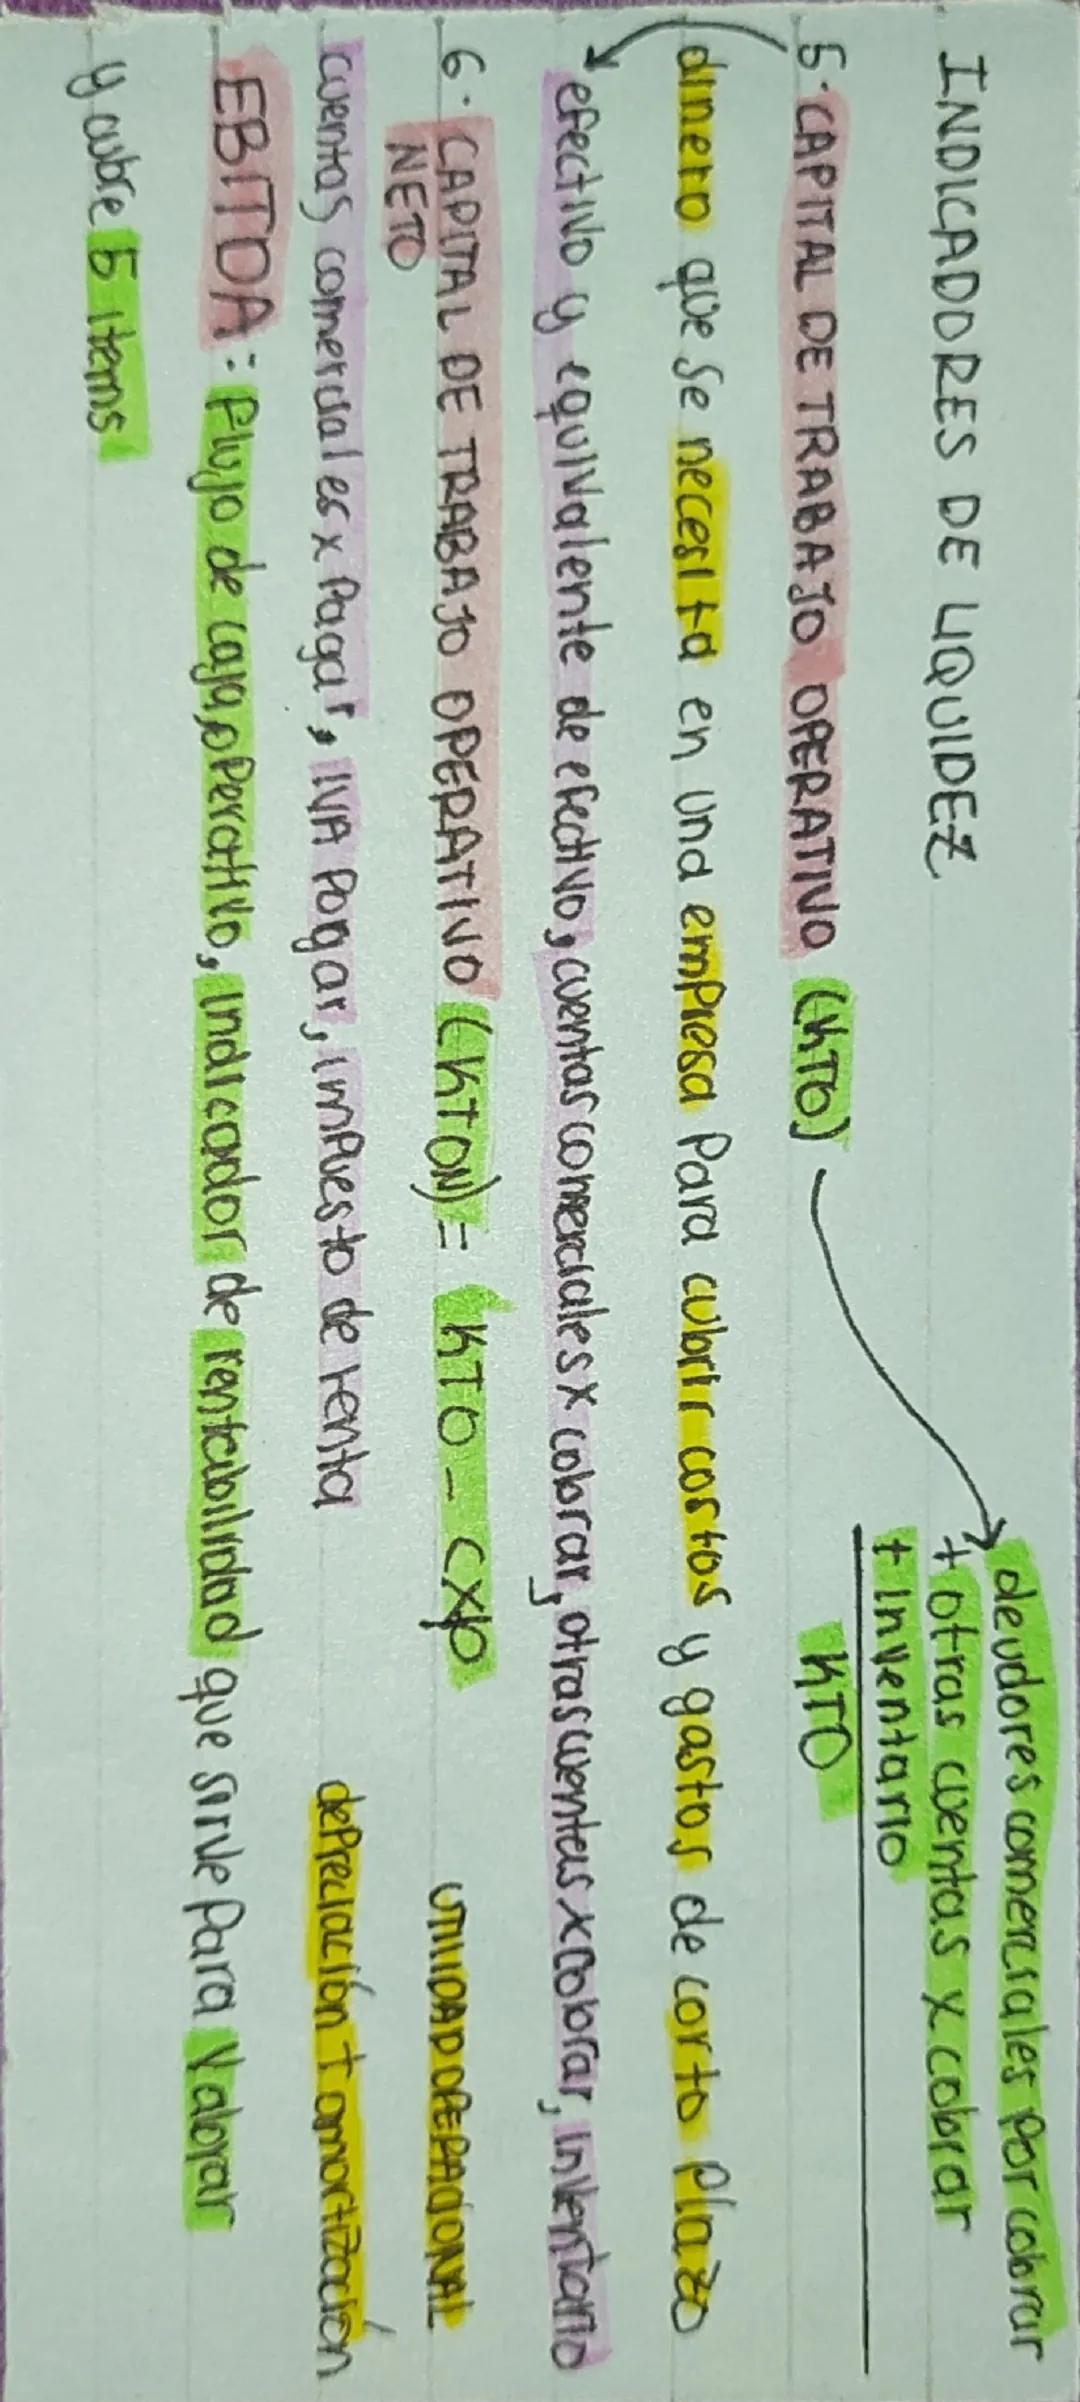 INDICADORES DE LIQUIDEZ
5. CAPITAL DE TRABAJO OPERATIVO (KTO)
deudores comerciales por cobrar
+ otras cuentas x cobrar
+ inventario
KTO
dinero que se necesita en una empresa para cubrir costos y gastos de corto plazo
efectivo y equivalente de efectivo, cuentas comerciales x cobrar, otras cuentas x cobrar, inventario
6. CAPITAL DE TRABAJO OPERATIVO (KTON) = KTO - CXP
NETO
cuentas comerciales x pagar, IVA pagar, impuesto de renta
UTILIDAD OPERACIONAL
depreciación + amortización
EBITDA: Flujo de caja operativo, indicador de rentabilidad que sirve para valorar
y cubre 5 items